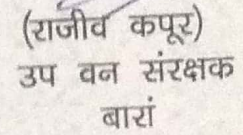 (राजीव कपूर)
उप वन संरक्षक
बारां